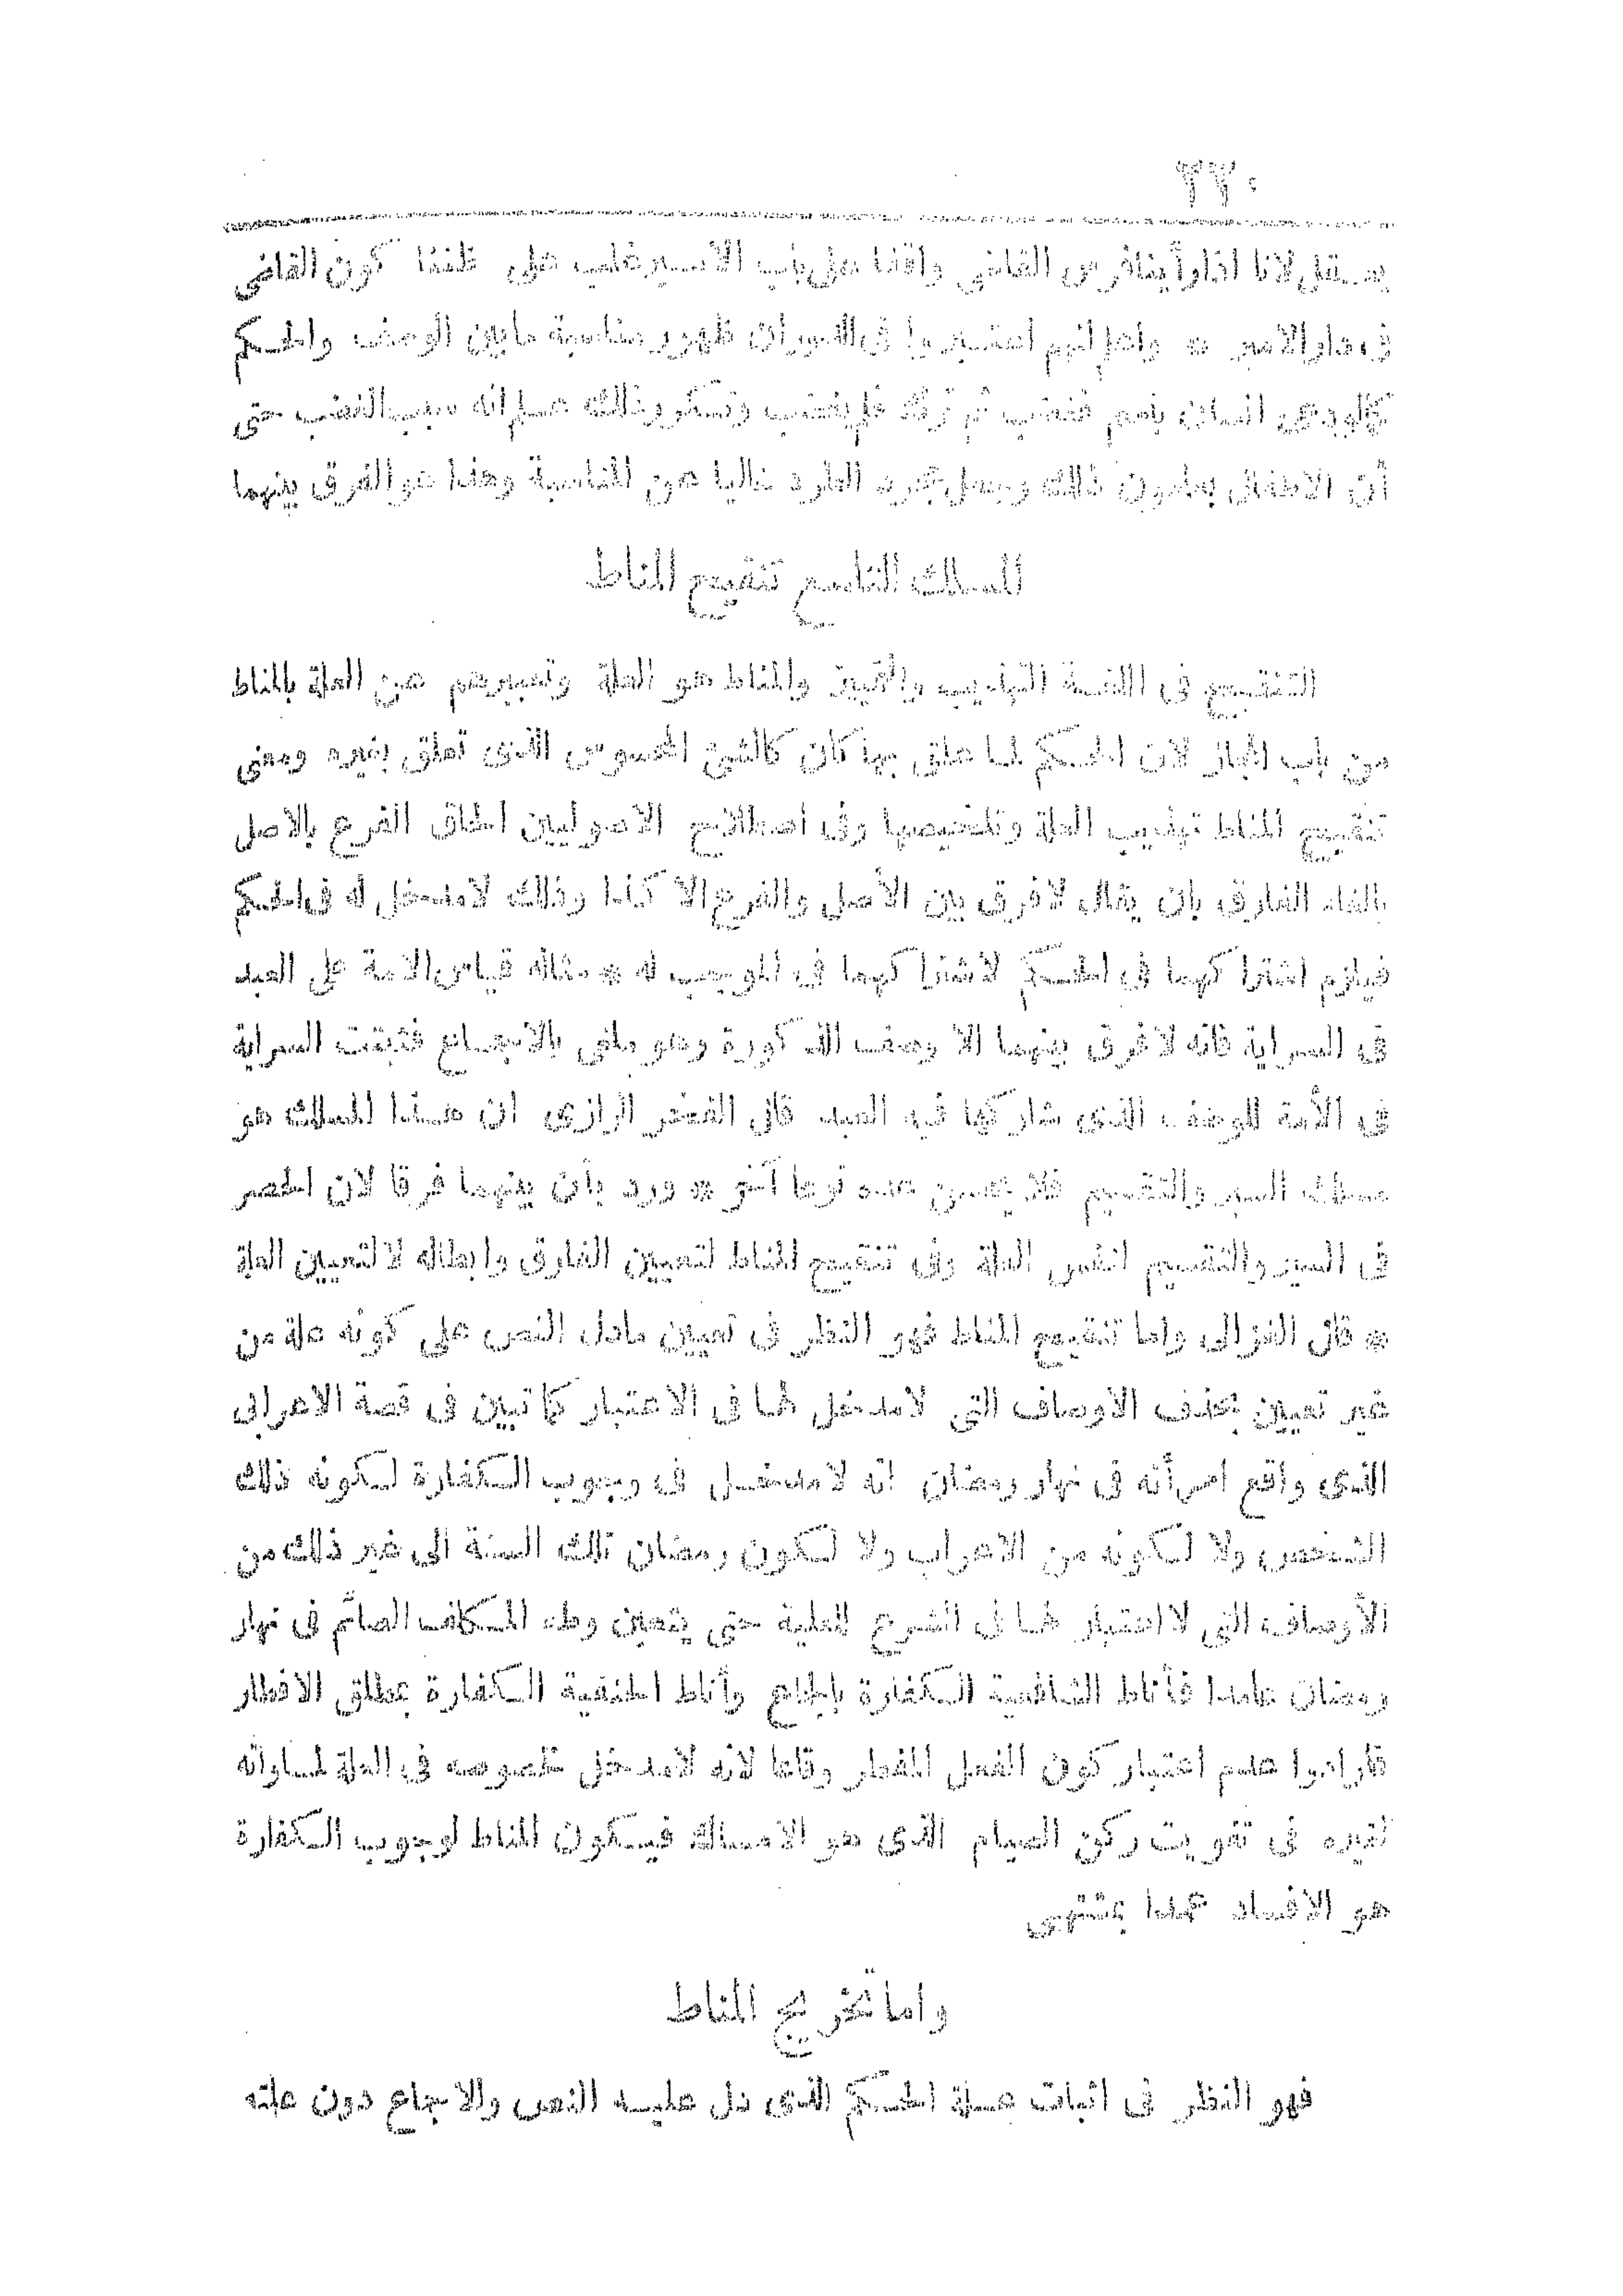 ٣٢٠
يستقل لانا اذا رأينا فرس القاضى واقفا على باب الامير غلب على ظننا كون القاضى
فى دار الامير * واعلم انهم اعتبروا فى الدوران ظهور مناسبة ما بين الوصف والحكم
كما لو دعى انسان باسم فغضب ثم ترك فلم يغضب وتكرر ذلك علم انه سبب الغضب حتى
أن الاطفال يعلمون ذلك ويعمل بمجرد الطرد خاليا عن المناسبة وهذا هو الفرق بينهما
المسلك التاسع تنقيح المناط
التنقيح فى اللغة التهذيب والتمييز والمناط هو العلة وتعبيرهم عن العلة بالمناط
من باب المجاز لان الحكم لما علق بها كان كالشئ المحسوس الذى تعلق بغيره ومعنى
تنقيح المناط تهذيب العلة وتلخيصها وفى اصطلاح الاصوليين الحاق الفرع بالاصل
بالغاء الفارق بان يقال لا فرق بين الأصل والفرع الا كذا وذلك لا مدخل له فى الحكم
فيلزم اشتراكهما فى الحكم لاشتراكهما فى الموجب له * مثاله قياس الامة على العبد
فى السراية فانه لا فرق بينهما الا وصف الذكورة وهو ملغى بالاجماع فثبتت السراية
فى الأمة للوصف الذى شاركها فيه العبد قال الفخر الرازى ان هذا المسلك هو
مسلك السبر والتقسيم فلا يحسن عده نوعا آخر * ورد بأن بينهما فرقا لان الحصر
فى السبر والتقسيم لنفس العلة وفى تنقيح المناط لتعيين الفارق وابطاله لا لتعيين العلة
* قال الغزالى واما تنقيح المناط فهو النظر فى تعيين ما دل النص على كونه علة من
غير تعيين بحذف الاوصاف التى لا مدخل لها فى الاعتبار كما تبين فى قصة الاعرابى
الذى واقع امرأته فى نهار رمضان انه لا مدخل فى وجوب الكفارة لكونه ذلك
الشخص ولا لكونه من الاعراب ولا لكون رمضان تلك السنة الى غير ذلك من
الأوصاف التى لا اعتبار لها فى الشرع للعلية حتى يتعين وطء المكلف الصائم فى نهار
رمضان عامدا فأناط الشافعية الكفارة بالجماع وأناط الحنفية الكفارة بمطلق الافطار
فارادوا عدم اعتبار كون الفعل المفطر وقاعا لانه لا مدخل لخصوصه فى العلة لمساواته
لغيره فى تفويت ركن الصيام الذى هو الامساك فيكون المناط لوجوب الكفارة
هو الافساد عمدا بمشتهى
واما تخريج المناط
فهو النظر فى اثبات علة الحكم الذى دل عليه النص والاجماع دون علته